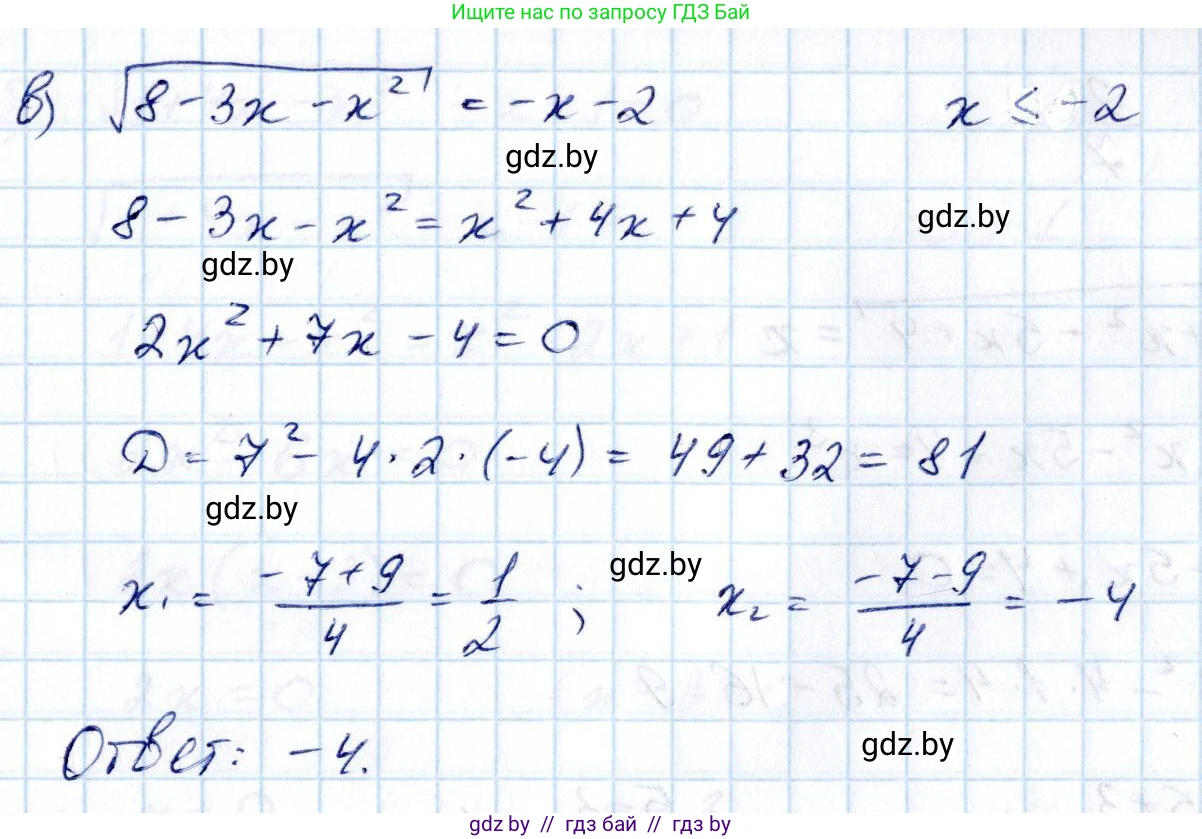 Ищите нас по запросу ГДЗ Бай
в) √(8 - 3x - x²) = -x - 2 x ≤ -2
gdz.by
8 - 3x - x² = x² + 4x + 4
gdz.by
gdz.by
2x² + 7x - 4 = 0
D = 7² - 4 · 2 · (-4) = 49 + 32 = 81
gdz.by
gdz.by
x₁ = (-7+9)/4 = 1/2 ; x₂ = (-7-9)/4 = -4
Ответ: -4.
gdz.by
gdz.by // гдз бай // гдз by